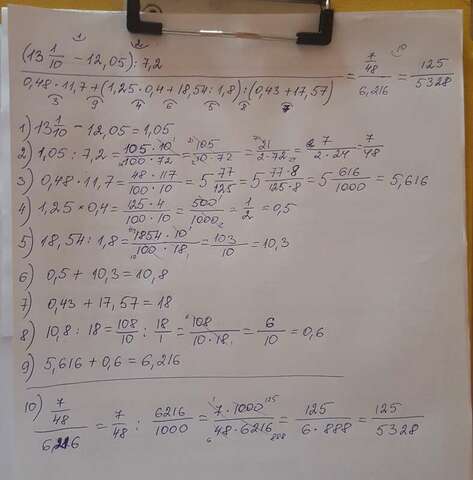 (13 1/10 - 12,05) : 7,2 / 0,48 · 11,7 + (1,25 · 0,4 + 18,54 : 1,8) : (0,43 + 17,57) = 7/48 / 6,216 = 125/5328
1) 13 1/10 - 12,05 = 1,05
2) 1,05 : 7,2 = 105 · 10/100 · 72 = 105/10 · 72 = 21/2 · 72 = 7/2 · 24 = 7/48
3) 0,48 · 11,7 = 48 · 117/100 · 10 = 5 77/125 = 5 77 · 8/125 · 8 = 5 616/1000 = 5,616
4) 1,25 × 0,4 = 125 · 4/100 · 10 = 500/1000 = 1/2 = 0,5
5) 18,54 : 1,8 = 1854 · 10/100 · 18 = 103/10 = 10,3
6) 0,5 + 10,3 = 10,8
7) 0,43 + 17,57 = 18
8) 10,8 : 18 = 108/10 : 18/1 = 108/10 · 18 = 6/10 = 0,6
9) 5,616 + 0,6 = 6,216
10) 7/48 / 6,216 = 7/48 : 6216/1000 = 7 · 1000/48 · 6216 = 125/6 · 888 = 125/5328